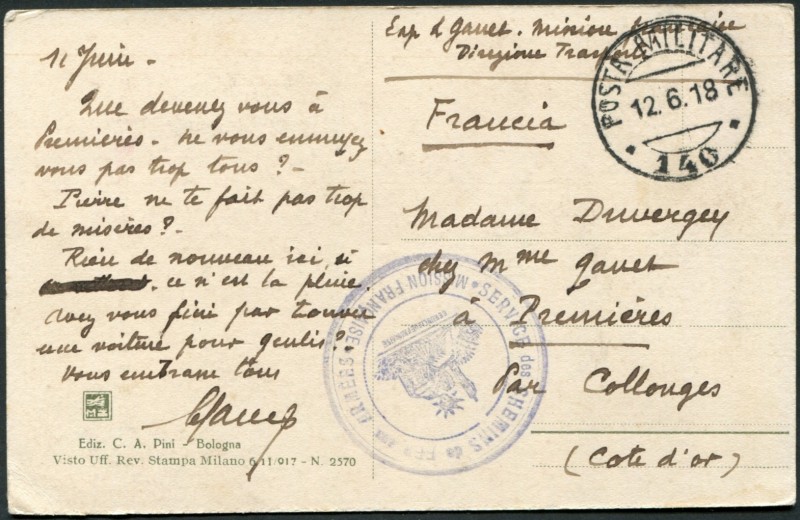 11 Juin -
Que devenez vous à
Premières. Ne vous ennuyez
vous pas trop tous ? -
Pierre ne te fait pas trop
de misères ? -
Rien de nouveau ici, si
ce n'est la pluie.
Avez vous fini par trouver
une voiture pour genlis ?
Vous embrasse tous
Ediz. C. A. Pini - Bologna
Visto Uff. Rev. Stampa Milano 6/11/917 - N. 2570
Exp d Gauet. Mission
Direzione
Francia
POSTA MILITARE
12.6.18
140
Madame Duvergey
chez Mme Gauet
à Premières
Par Collonges
(Cote d'or)
SERVICE des CHEMINS de FER aux ARMÉES
MISSION FRANÇAISE